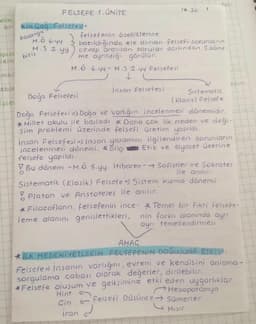 FELSEFE 1.ÜNİTE
İlk Çağ Felsefesi
M.Ö 6.yy
M.S 2.yy
felsefenin özelliklerine
bakıldığında ele alınan felsefi sorunların
cevap aranılan sorular açısından 3 dönem
ayrıldığı görülür.
M.Ö 6.yy - M.S 2.yy Felsefesi
Doğa Felsefesi
İnsan Felsefesi
Sistematik
(Klasik) Felsefe
Doğa Felsefesi: Doğa ve varlığın incelenmesi dönemidir.
* Milet okulu ile başladı * Daha çok ilk neden ve değişim
problemi üzerinde felsefi üretim yapıldı.
İnsan Felsefesi: İnsan yaşamını ilgilendiren sorunların
incelenmesi dönemi. Etik ve siyaset üzerine
felsefe yapıldı.
Bu dönem → M.Ö 5.yy itibaren → Sofistler ve Sokrates
ile anılır.
Sistematik (Klasik) Felsefe: Sistem kurma dönemi
Platon ve Aristoteles ile anılır.
* Filozofların, felsefenin ince-
leme alanını genişlettikleri,
* Temel bir fikri felsefe-
nin farklı alanında ayrı
ayrı temellendirmesi
AMAÇ
* İLK MEDENİYETLERİN FELSEFENİN DOĞUŞUNA ETKİSİ
Felsefe; İnsanın varlığını, evreni ve kendisini anlama-
sorgulama çabası olarak değerlendirilebilir.
* Felsefe oluşum ve gelişimine etki eden uygarlıklar
Hint
Çin
İran
Felsefi Düşünce
Mezopotamya
Sümerler
Mısır